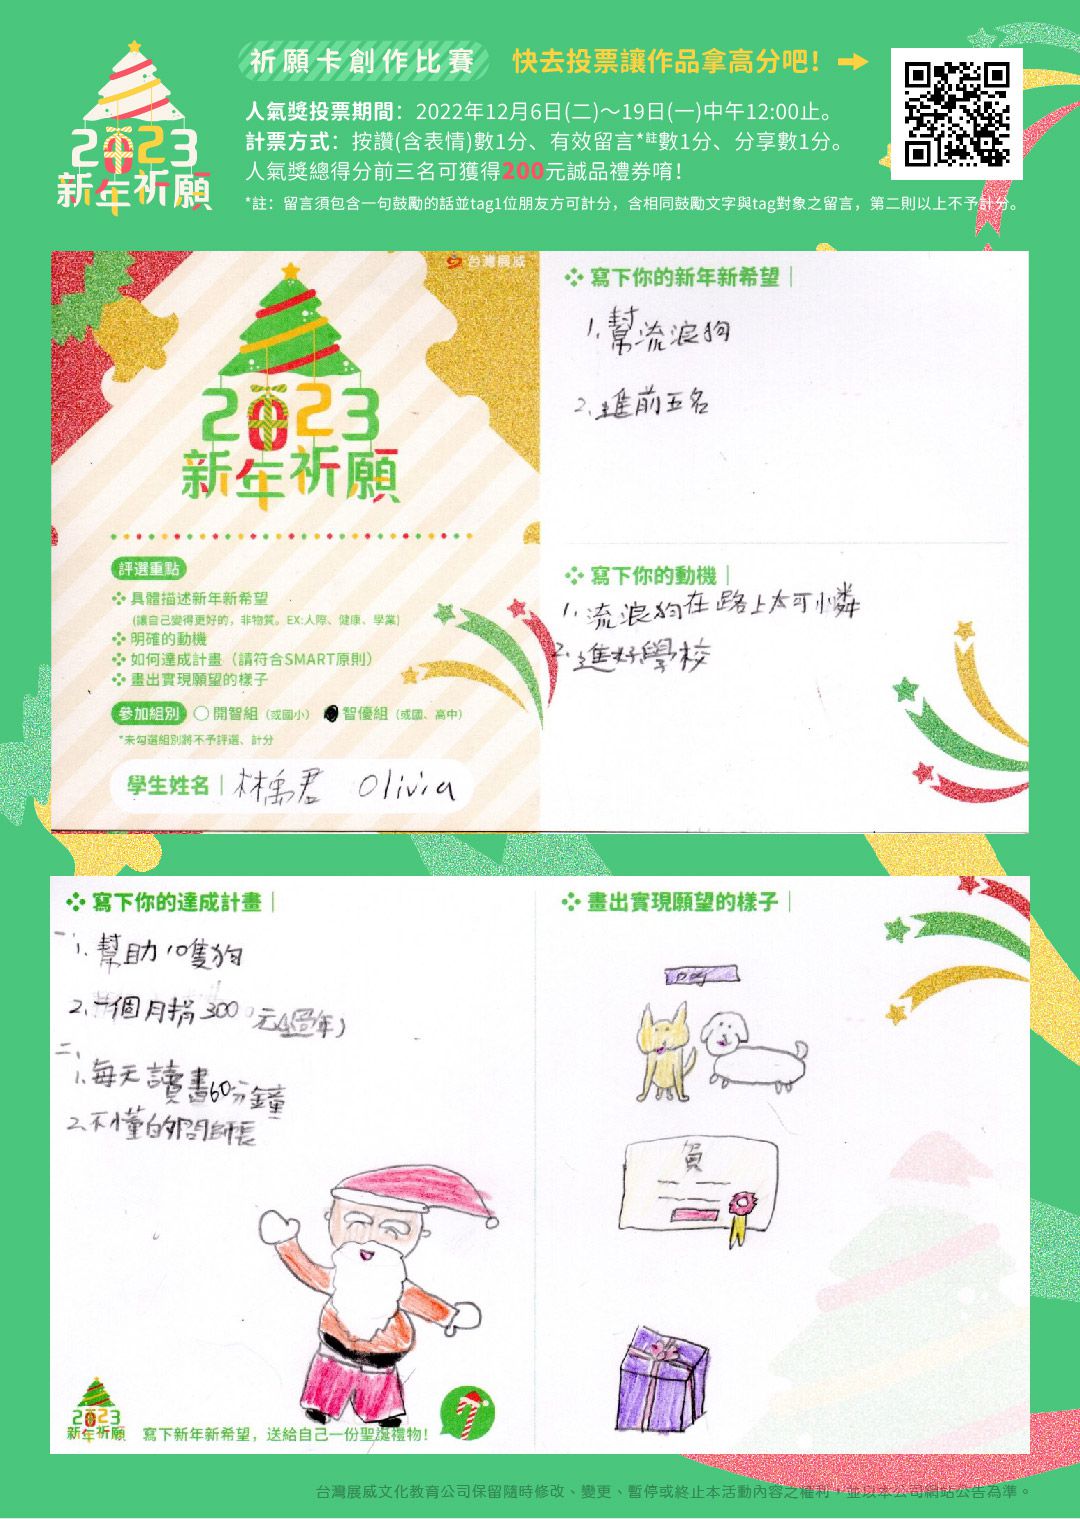 2023
新年祈願
祈願卡創作比賽
快去投票讓作品拿高分吧!
人氣獎投票期間：2022年12月6日(二)～19日(一)中午12:00止。
計票方式：按讚(含表情)數1分、有效留言*註數1分、分享數1分。
人氣獎總得分前三名可獲得200元誠品禮券唷!
*註：留言須包含一句鼓勵的話並tag1位朋友方可計分，含相同鼓勵文字與tag對象之留言，第二則以上不予計分。
台灣展威
2023
新年祈願
評選重點
具體描述新年新希望
(讓自己變得更好的，非物質。EX:人際、健康、學業)
明確的動機
如何達成計畫（請符合SMART原則）
畫出實現願望的樣子
參加組別 開智組（或國小） 智優組（或國、高中）
*未勾選組別將不予評選、計分
學生姓名｜林禹君 Olivia
寫下你的新年新希望｜
1.幫流浪狗
2.進前五名
寫下你的動機｜
1.流浪狗在路上太可憐
2.進好學校
寫下你的達成計畫｜
一、1.幫助10隻狗
2.一個月捐300元(過年)
二、
1.每天讀書60分鐘
2.不懂的多問師長
2023
新年祈願
寫下新年新希望，送給自己一份聖誕禮物!
畫出實現願望的樣子｜
台灣展威文化教育公司保留隨時修改、變更、暫停或終止本活動內容之權利，並以本公司網站公告為準。